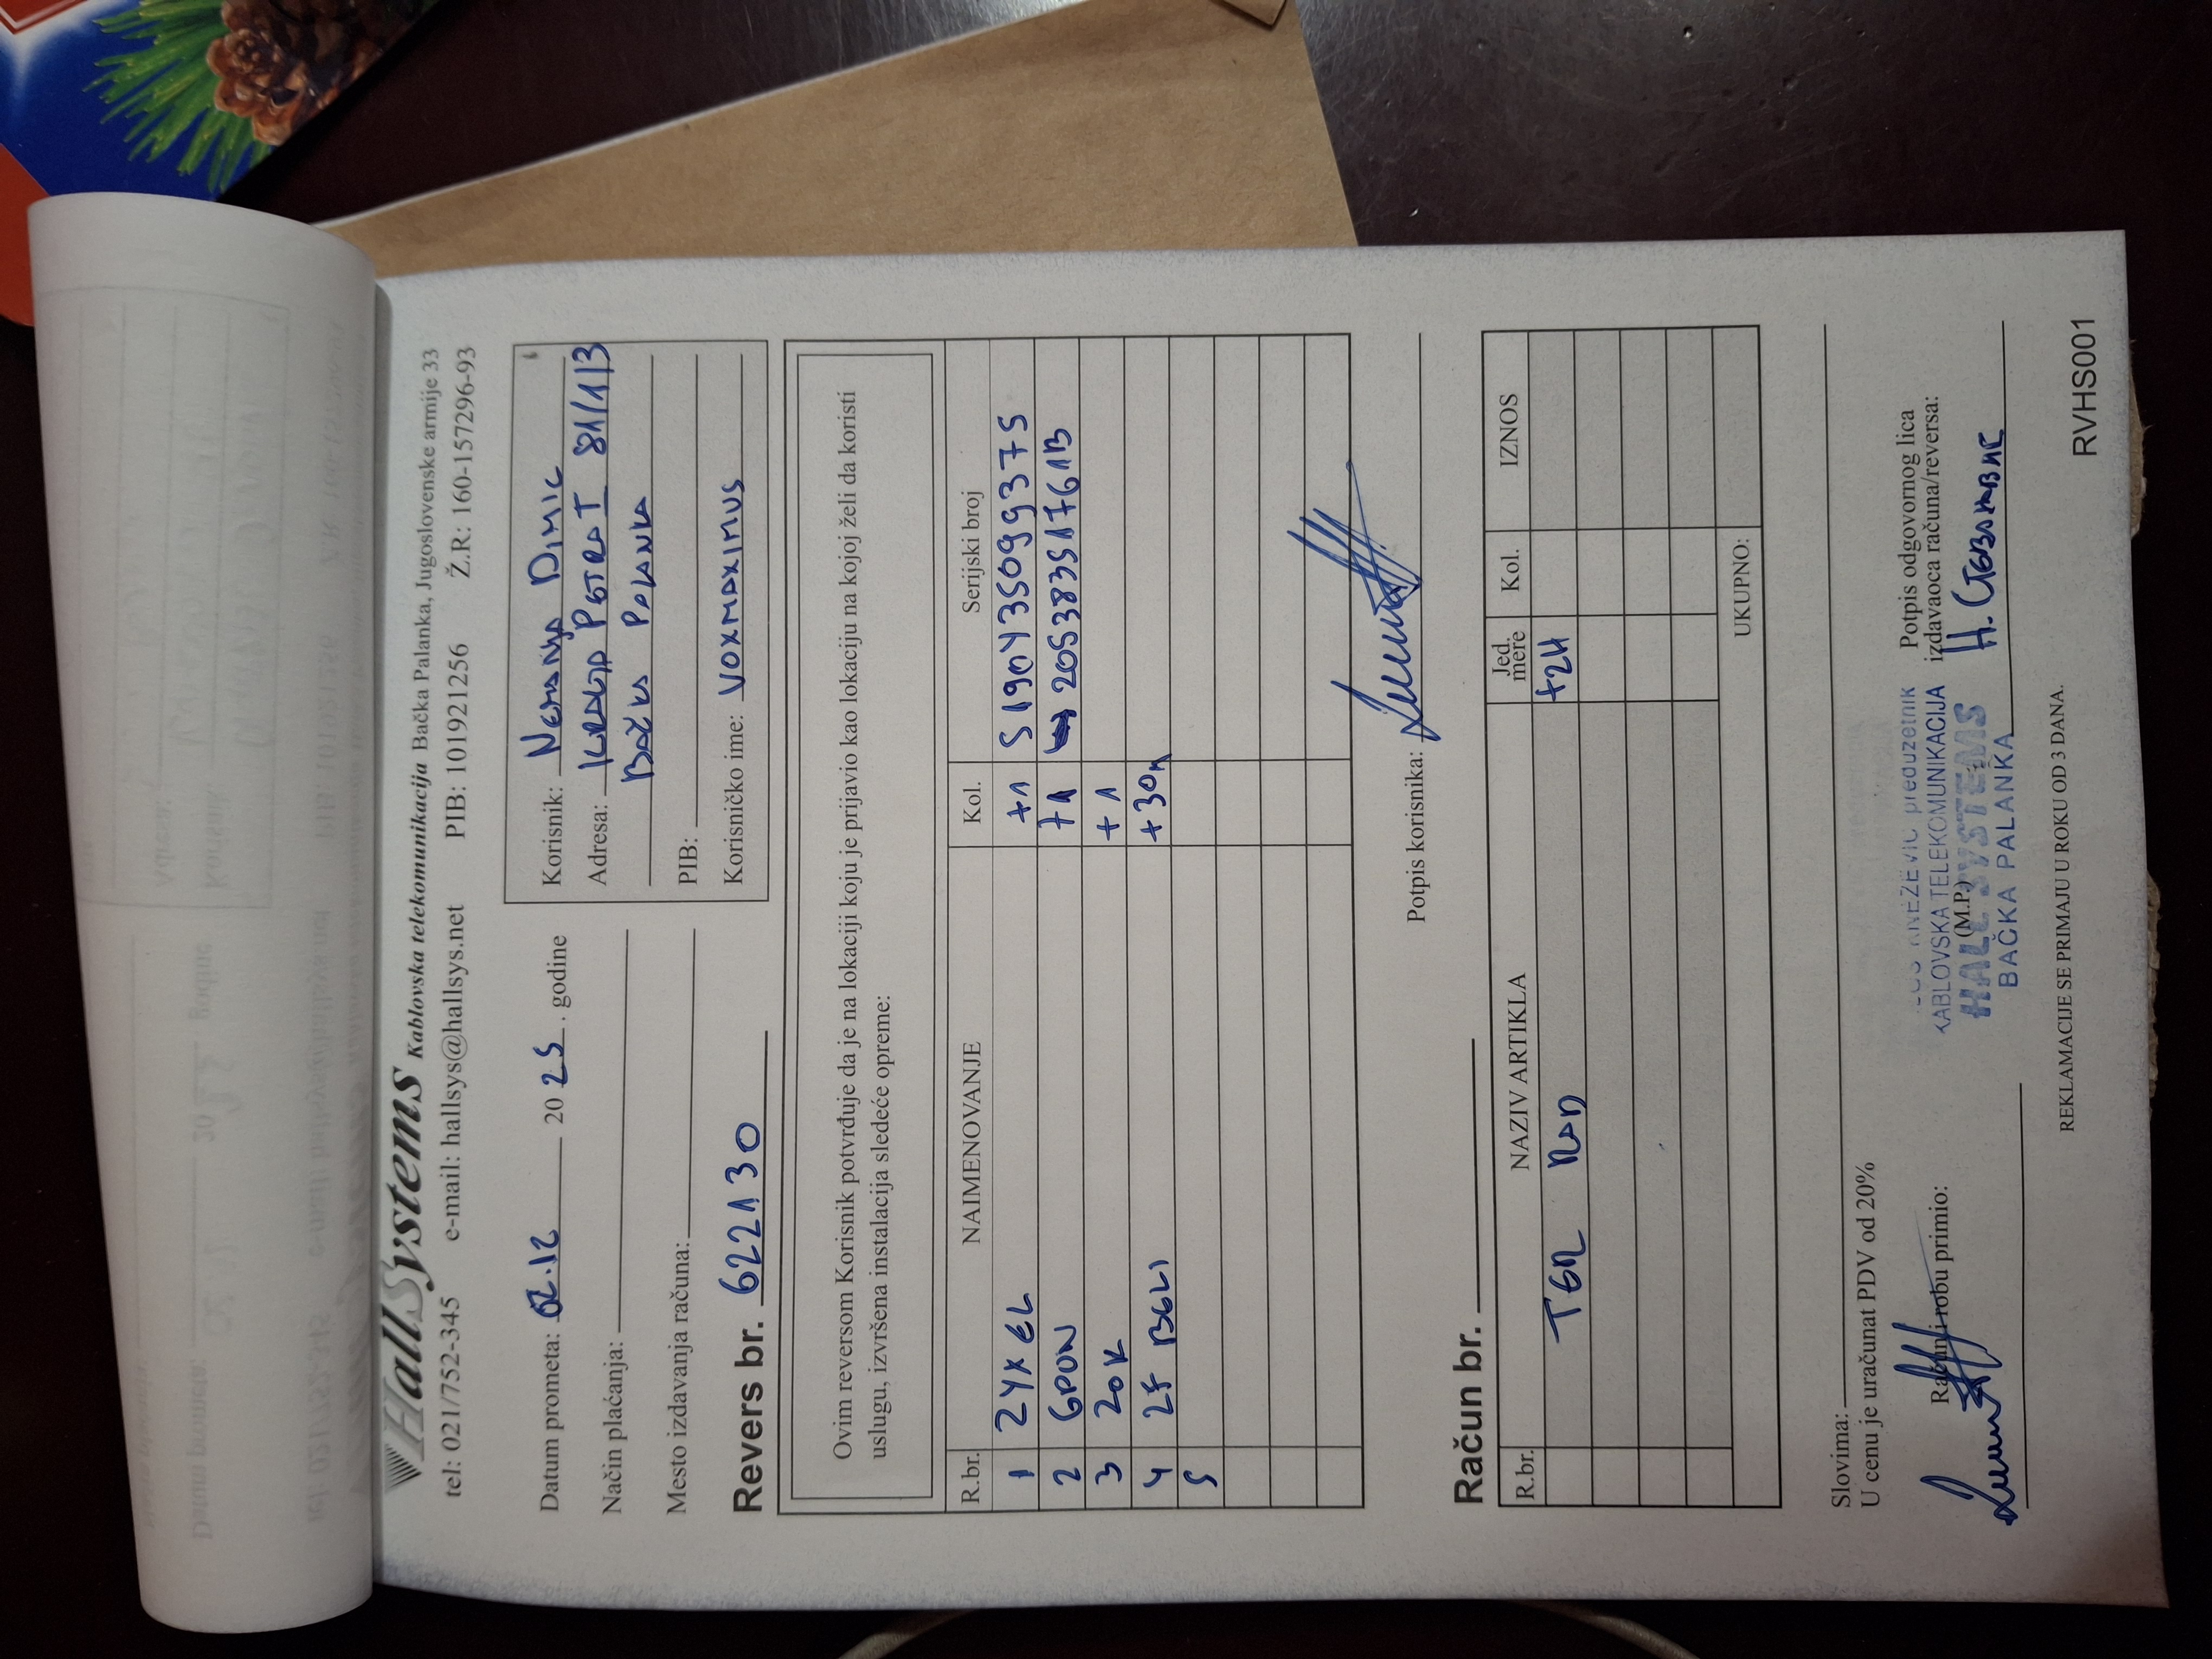 HallSystems Kablovska telekomunikacija Bačka Palanka, Jugoslovenske armije 33
tel: 021/752-345 e-mail: hallsys@hallsys.net PIB: 101921256 Ž.R.: 160-157296-93
Datum prometa: 02.12 2025. godine
Način plaćanja:
Mesto izdavanja računa:
Korisnik: Nemanja Dimic
Adresa: Kralja Petra I 81/1/3
Bačka Palanka
PIB:
Korisničko ime: VOXMAXIMUS
Revers br. 622130
Ovim reversom Korisnik potvrđuje da je na lokaciji koju je prijavio kao lokaciju na kojoj želi da koristi
uslugu, izvršena instalacija sledeće opreme:
R.br. NAIMENOVANJE Kol. Serijski broj
1 ZYXEL +1 S190Y35099375
2 GPON +1 20538351761B
3 ZOK +1
4 2F BELI +30m
5
Potpis korisnika:
Račun br.
R.br. NAZIV ARTIKLA Jed. mere Kol. IZNOS
+2H
UKUPNO:
Slovima:
U cenu je uračunat PDV od 20%
Račun i robu primio:
(M.P.)
KNEŽEVIĆ preduzetnik
KABLOVSKA TELEKOMUNIKACIJA
HALL SYSTEMS
BAČKA PALANKA
Potpis odgovornog lica
izdavaoca računa/reversa:
REKLAMACIJE SE PRIMAJU U ROKU OD 3 DANA.
RVHS001